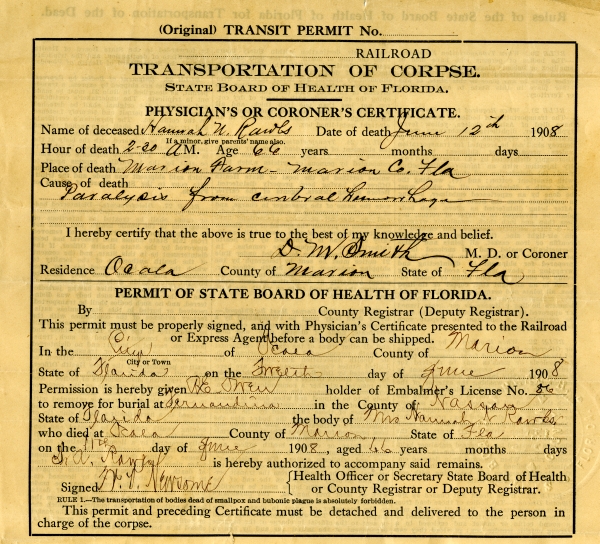 (Original) TRANSIT PERMIT No.
RAILROAD
TRANSPORTATION OF CORPSE.
STATE BOARD OF HEALTH OF FLORIDA.
PHYSICIAN'S OR CORONER'S CERTIFICATE.
Name of deceased Hannah N. Rawls Date of death June 12th 1908
If a minor, give parents' name also.
Hour of death 2-30 A M. Age 66 years months days
Place of death Marion Farm - Marion Co. Fla
Cause of death
Paralysis from cerebral hemorrhage
I hereby certify that the above is true to the best of my knowledge and belief.
D. M. Smith M. D. or Coroner
Residence Ocala County of Marion State of Fla
PERMIT OF STATE BOARD OF HEALTH OF FLORIDA.
By County Registrar (Deputy Registrar).
This permit must be properly signed, and with Physician's Certificate presented to the Railroad
or Express Agent before a body can be shipped.
In the City of Ocala County of Marion
City or Town
State of Florida on the Twelth day of June 1908
Permission is hereby given Owen holder of Embalmer's License No. 86
to remove for burial at Fernandina in the County of Nassau
State of Florida the body of Mrs Hannah N Rawls
who died at Ocala County of Marion State of Fla
on the day of June 1908, aged 66 years months days
is hereby authorized to accompany said remains.
Signed Newsome Health Officer or Secretary State Board of Health
or County Registrar or Deputy Registrar.
RULE 1.—The transportation of bodies dead of smallpox and bubonic plague is absolutely forbidden.
This permit and preceding Certificate must be detached and delivered to the person in
charge of the corpse.